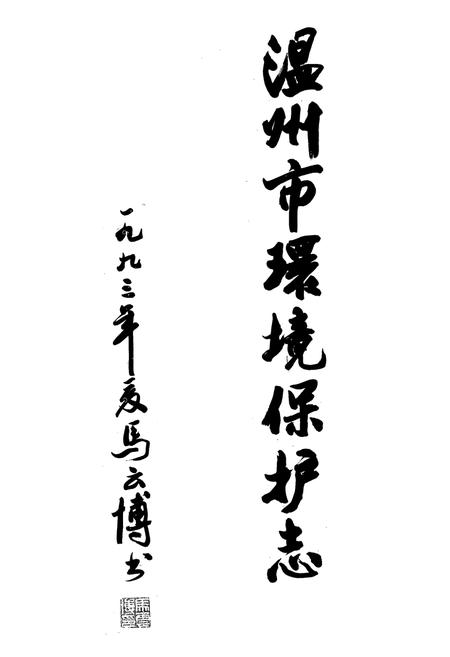 温州市環境保护志
一九九三年夏馬云博书